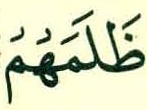 ظَلَمَهُمْ